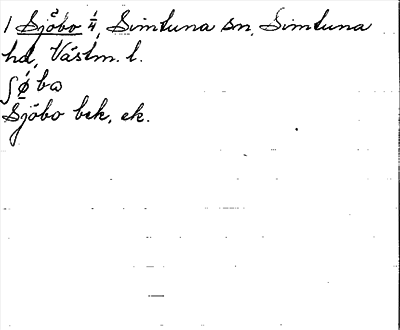 1 Sjöbo 1/4, Simtuna sn, Simtuna
hd, Västm. l.
ʃǿ̠ba
Sjöbo bek, ek.